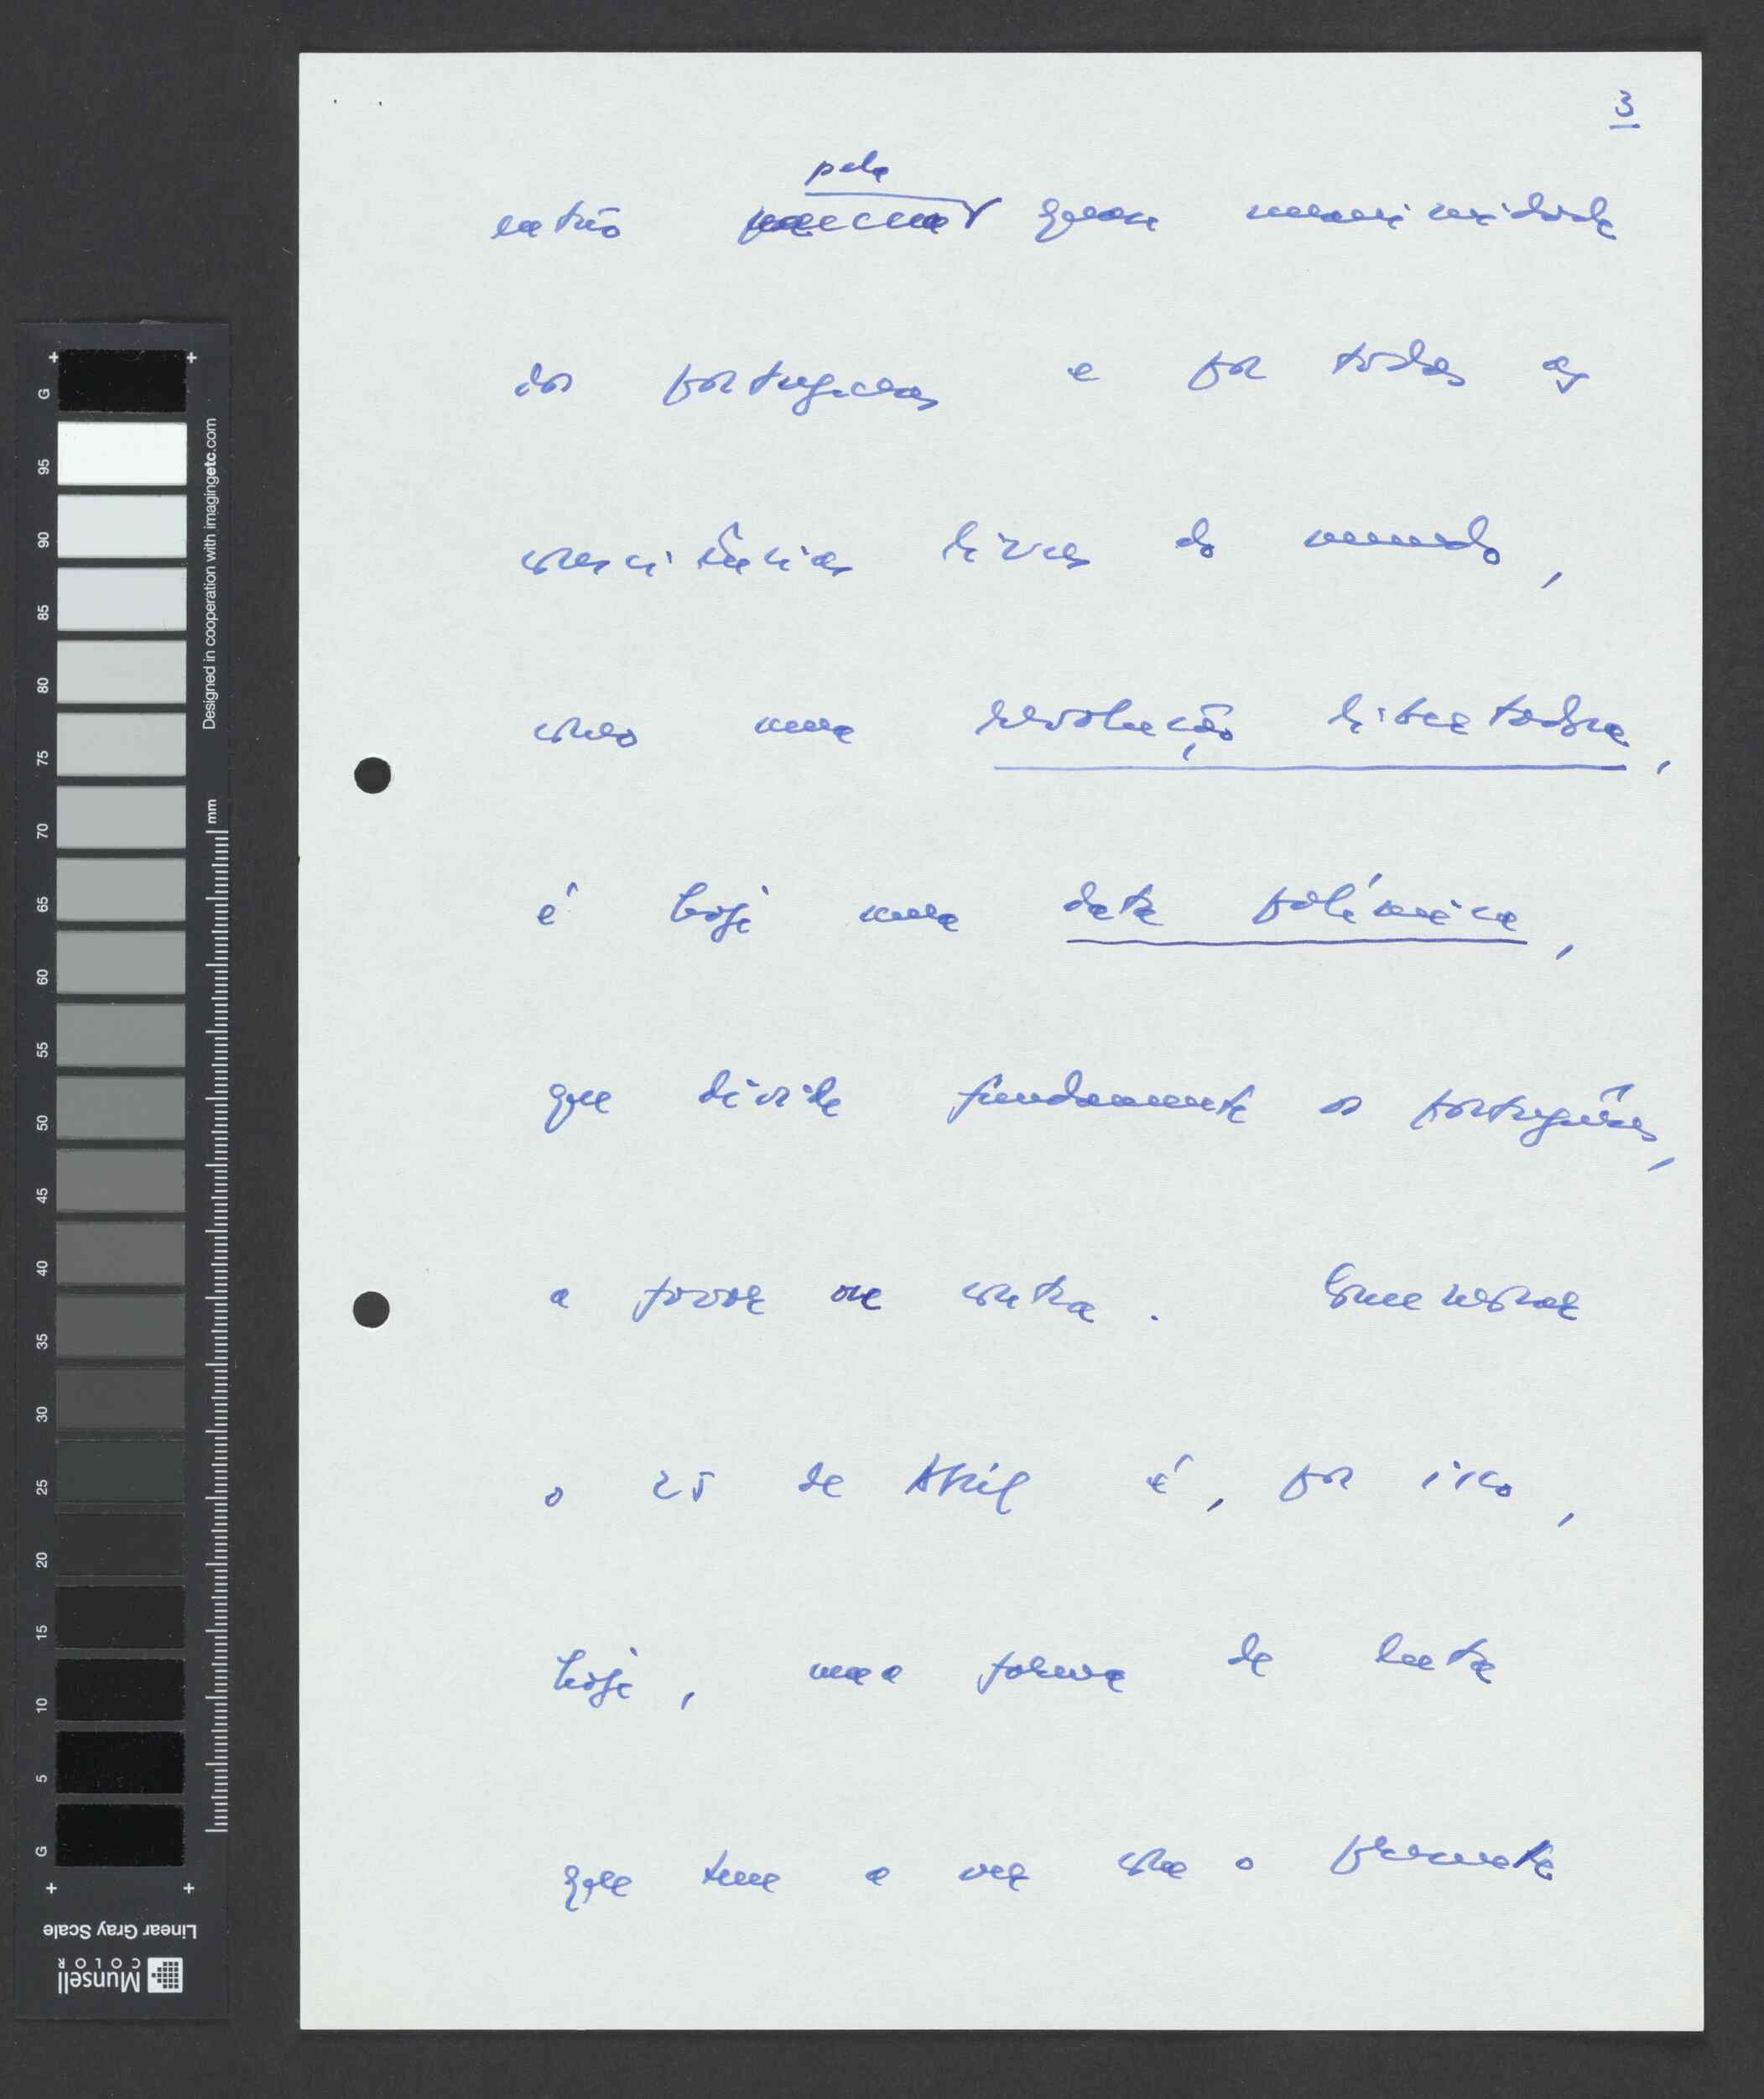 3
pela
então quase unanimidade
dos portugueses e por todas as
consciências livres do mundo,
como uma revolução libertadora,
é hoje uma data polémica,
que divide fundamente os portugueses,
a favor ou contra. Comemorar
o 25 de Abril é, por isso,
hoje, uma forma de luta
que tem a ver com o presente
G 95 90 85 80 75 70 65 60 55 50 45 40 35 30 25 20 15 10 5 G
Designed in cooperation with imagingetc.com
mm
Linear Gray Scale
Munsell
COLOR